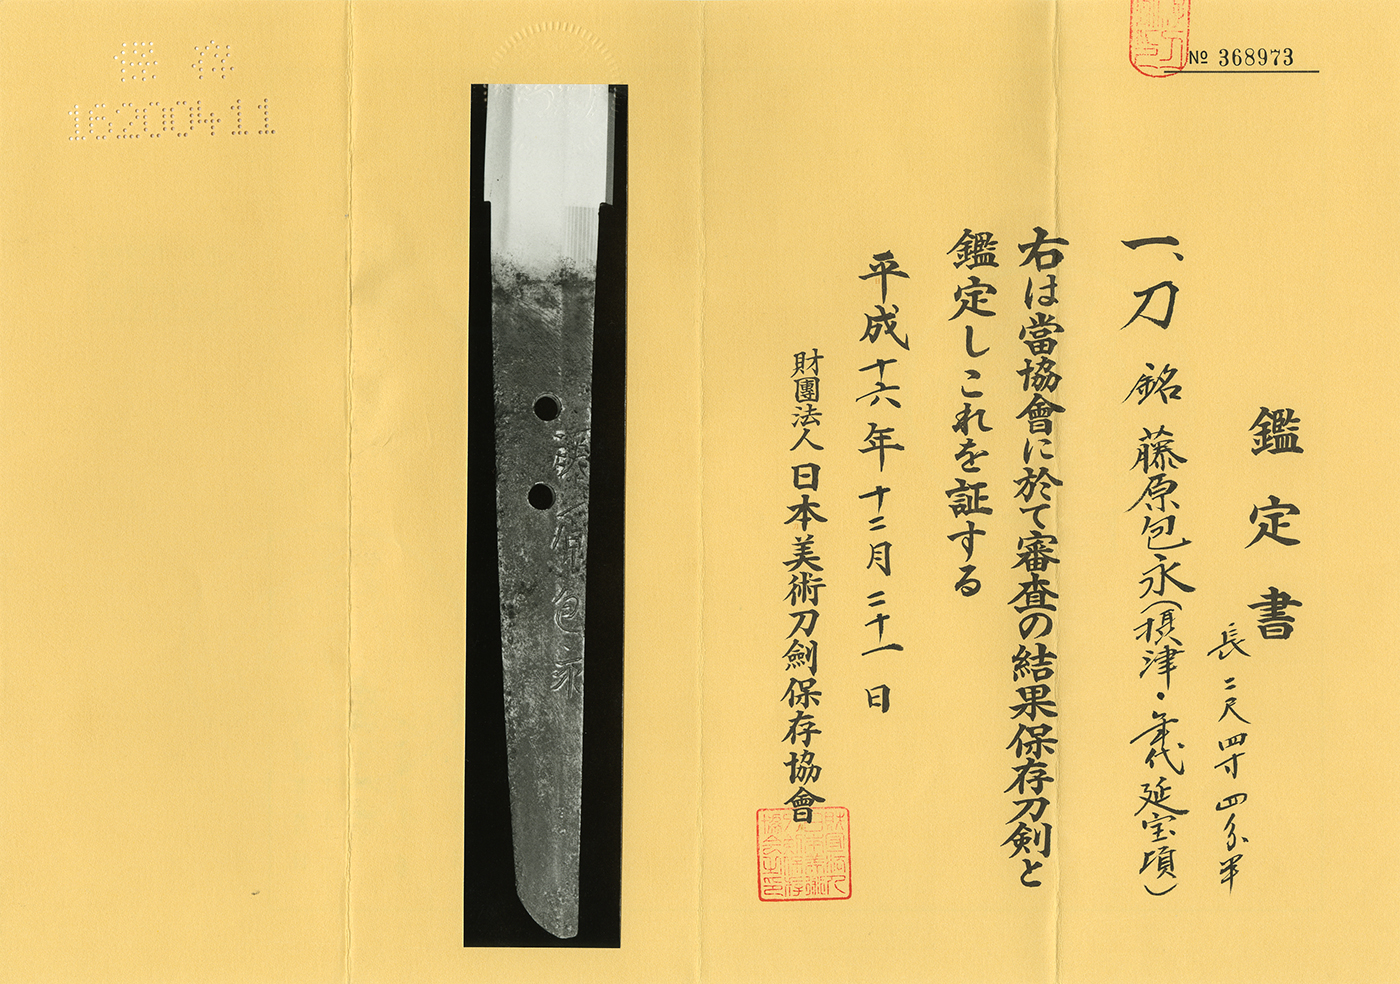 № 368973
鑑定書
長 二尺四寸四分半
一、刀 銘 藤原包永(摂津・年代延宝頃)
右は當協會に於て審査の結果保存刀剣と
鑑定しこれを証する
平成十六年十二月二十一日
財團法人 日本美術刀劍保存協會
藤原包永
保存
16200411